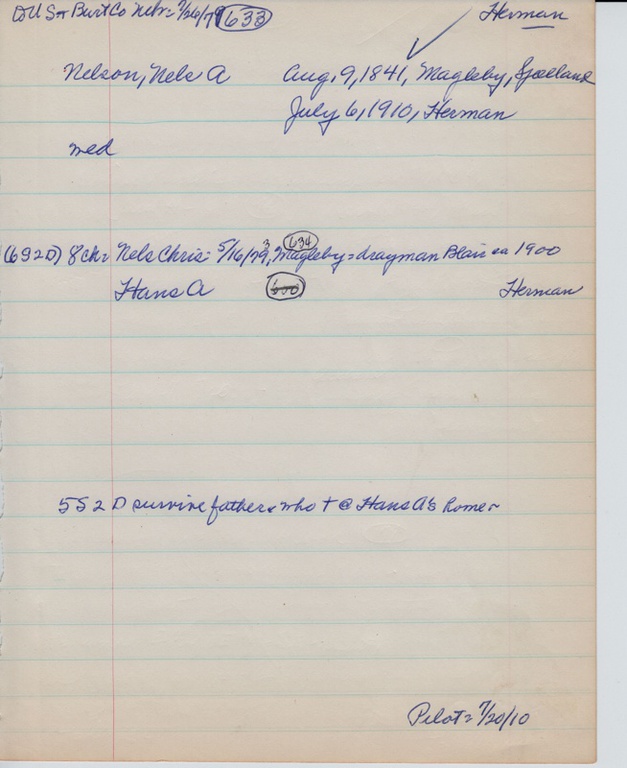 to US + Burt Co Nebr = 7/26/79 633 Herman
Nelson, Nels A Aug, 9, 1841, Magleby, Sjaelland
July 6, 1910, Herman
med
634
(6S2D) 8 ch = Nels Chris = 5/16/73, Magleby = drayman Blair ca 1900
Hans A 600 Herman
5S 2 D survive father who † @ Hans A's home
Pilot = 7/20/10